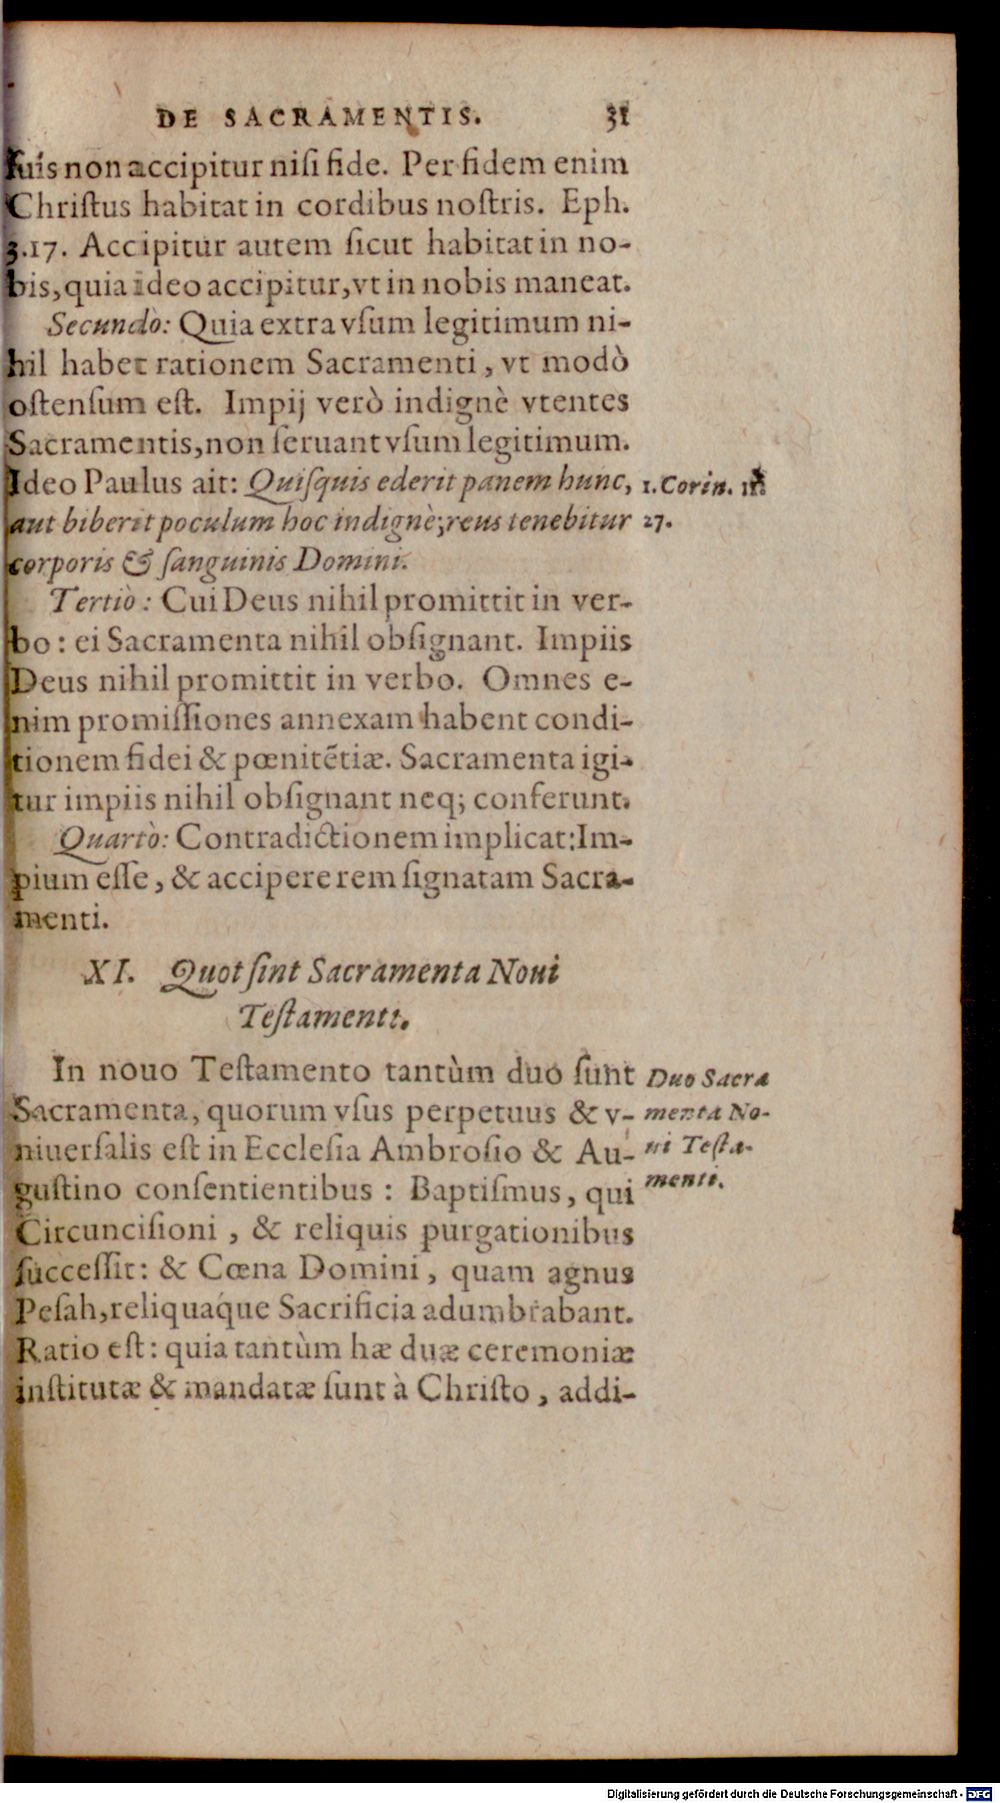 DE SACRAMENTIS. 31
ſuis non accipitur niſi fide. Per fidem enim
Chriſtus habitat in cordibus noſtris. Eph.
3.17. Accipitur autem ſicut habitat in no-
bis, quia ideo accipitur, vt in nobis maneat.
Secundò: Quia extra vſum legitimum ni-
hil habet rationem Sacramenti, vt modò
oſtenſum eſt. Impij verò indignè vtentes
Sacramentis, non ſeruant vſum legitimum.
Ideo Paulus ait: Quiſquis ederit panem hunc,
aut biberit poculum hoc indignè, reus tenebitur
corporis & ſanguinis Domini.
1. Corin. 11.
27.
Tertiò: Cui Deus nihil promittit in ver-
bo: ei Sacramenta nihil obſignant. Impiis
Deus nihil promittit in verbo. Omnes e-
nim promiſſiones annexam habent condi-
tionem fidei & pœnitẽtiæ. Sacramenta igi-
tur impiis nihil obſignant neq; conferunt.
Quartò: Contradictionem implicat: Im-
pium eſſe, & accipere rem ſignatam Sacra-
menti.
XI. Quot ſint Sacramenta Noui
Teſtamenti.
In nouo Teſtamento tantùm duo ſunt
Sacramenta, quorum vſus perpetuus & v-
niuerſalis eſt in Eccleſia Ambroſio & Au-
guſtino conſentientibus: Baptiſmus, qui
Circunciſioni, & reliquis purgationibus
ſucceſſit: & Cœna Domini, quam agnus
Peſah, reliquaque Sacrificia adumbrabant.
Ratio eſt: quia tantùm hæ duæ ceremoniæ
inſtitutæ & mandatæ ſunt à Chriſto, addi-
Duo Sacra
menta No-
ui Teſta-
menti.
Digitalisierung gefördert durch die Deutsche Forschungsgemeinschaft - DFG